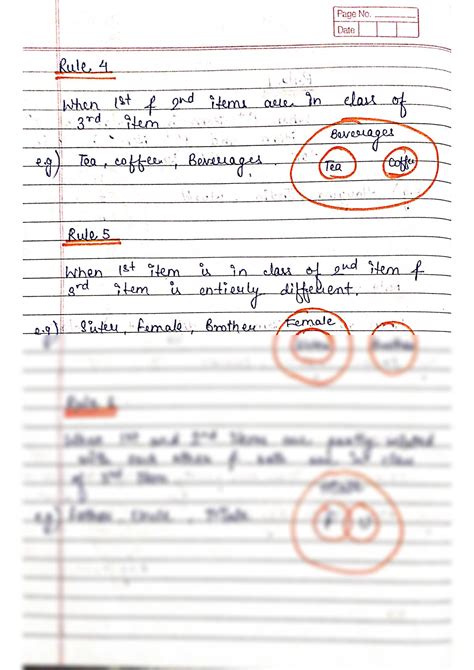 Page No.
Date
Rule 4
When 1st & 2nd items are in class of
3rd item
Beverages
e.g) Tea, coffee, Beverages.
Tea Coffee
Rule 5
When 1st item is in class of 2nd item &
3rd item is entierly different.
e.g) Sister, Female, Brother
Female
Rule
When 1st and 2nd items are partly related
with each other & both are
of 3rd item
e.g) Father, Uncle,